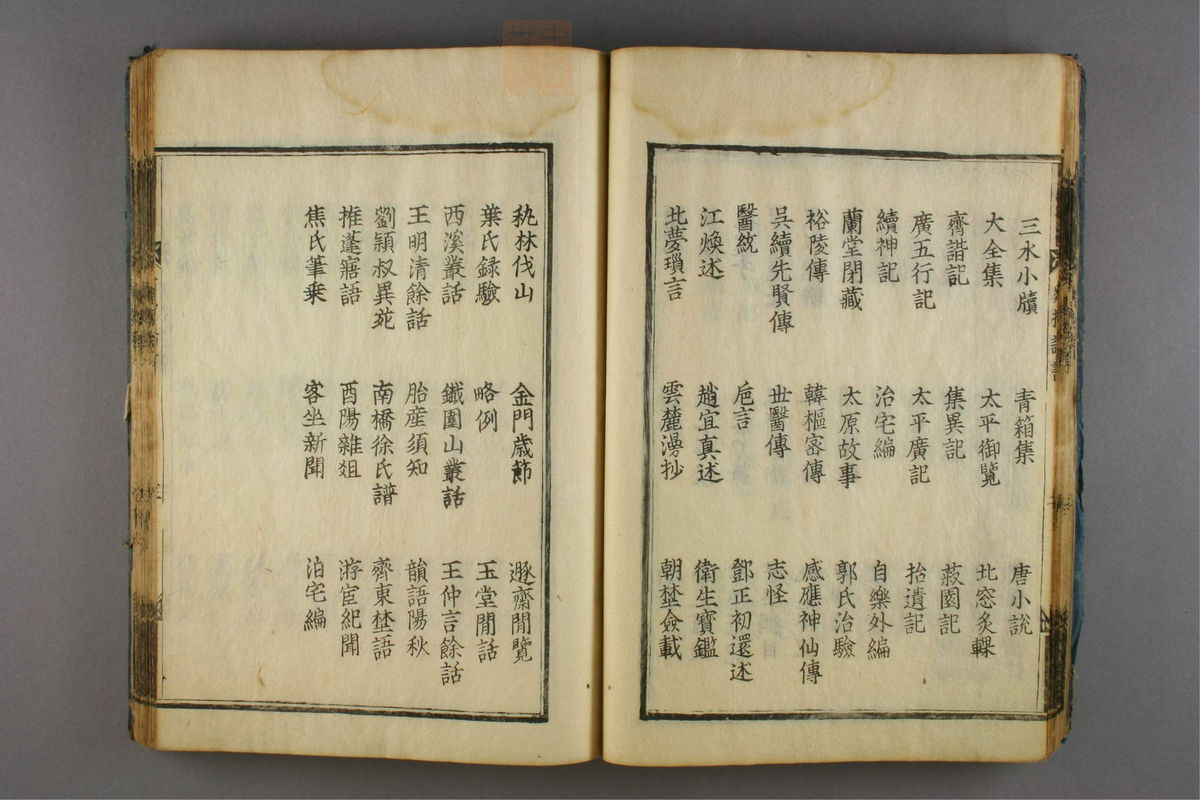 三水小牘 青箱集 唐小說
大全集 太平御覽 北窓炙輠
齊諧記 集異記 菽園記
廣五行記 太平廣記 拾遺記
續神記 治宅編 自樂外編
蘭堂閒藏 太原故事 郭氏治驗
裕陵傳 韓樞密傳 感應神仙傳
呉續先賢傳 世醫傳 志怪
醫統 巵言 鄧正初還述
江煥述 趙宜真述 衛生寶鑑
北夢瑣言 雲麓漫抄 朝埜僉載
秇林伐山 金門歲節 遯齋閒覽
葉氏録驗 略例 玉堂閒話
西溪叢話 鐵圍山叢話 王仲言餘話
王明清餘話 胎産須知 韻語陽秋
劉頴叔異苑 南橋徐氏譜 齊東埜語
推蓬寤語 酉陽雜爼 游宦紀聞
焦氏筆乗 客坐新聞 泊宅編